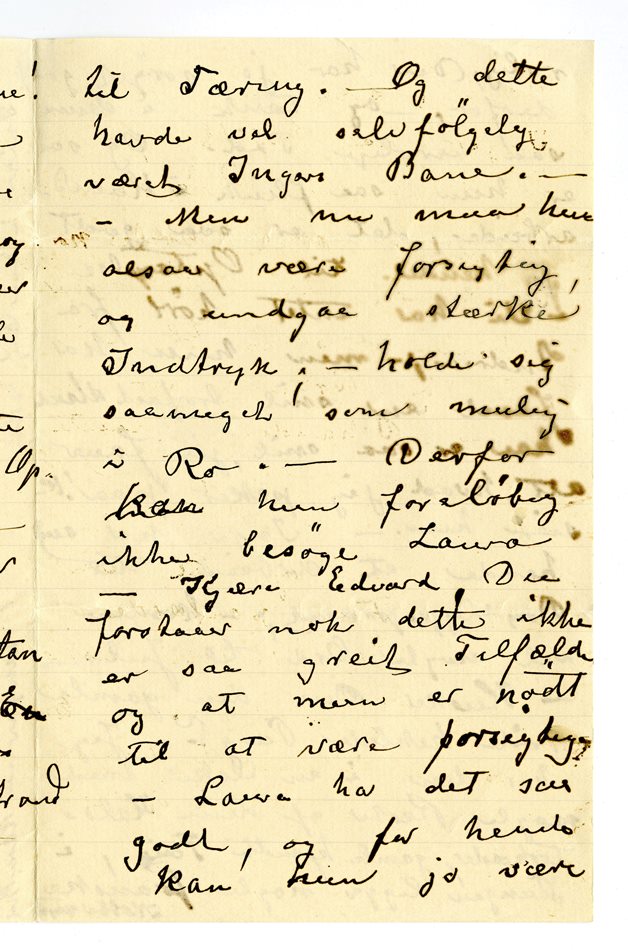 til Tæring. — Og dette
havde vel selvfölgelig
været Ingers Bane. —
– Men nu maa hun
alsaa være forsigtig,
og undgaa stærke
Indtryk, – holde sig
saameget som mulig
i Ro. — Derfor
kan hun foreløbig
ikke besöge Laura
— Kjære Edvard, Du
forstaaer nok dette ikke
er saa greit Tilfælde
og at man er nödt
til at være forsigtig,
– Laura har det saa
godt, og for hende
kan hun jo være